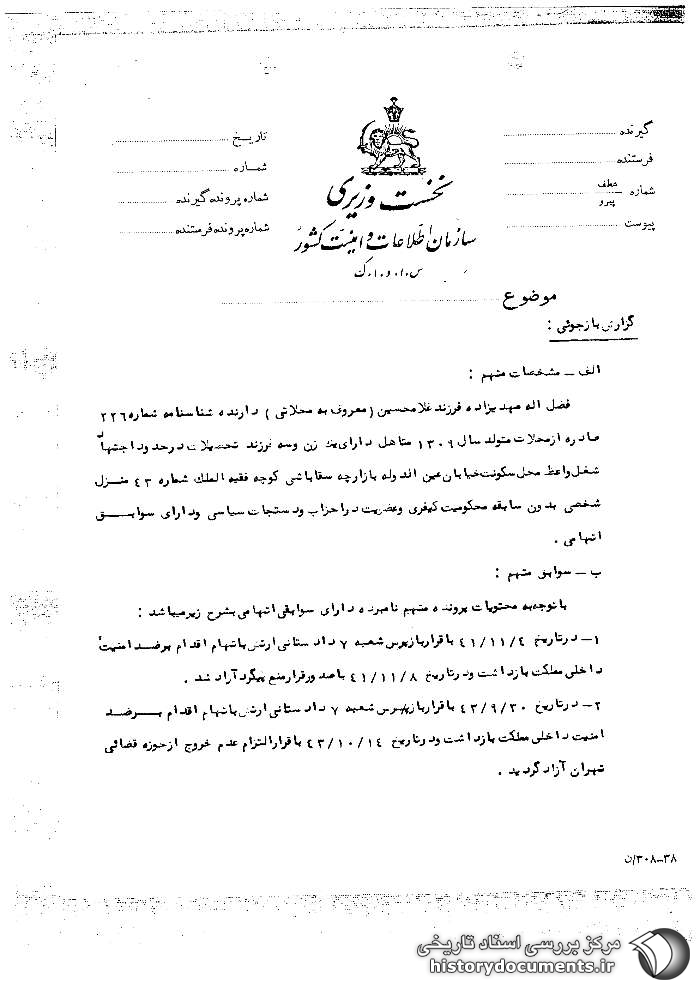 گیرنده
فرستنده
شماره عطف پیرو
پیوست
نخست وزیری
سازمان اطلاعات و امنیت کشور
س.ا.و.ا.ک
تاریخ
شماره
شماره پرونده گیرنده
شماره پرونده فرستنده
موضوع
گزارش بازجوئی :
الف ــ مشخصات متهم :
فضل اله مهدیزاده فرزند غلامحسین (معروف به محلاتی ) دارنده شناسنامه شماره ۲۲۶
صادره از محلات متولد سال ۱۳۰۹ متاهل دارای یک زن وسه فرزند تحصیلات در حدود اجتهاد
شغل واعظ محل سکونت خیابان عین الدوله بازارچه سقاباشی کوچه فقیه الملک شماره ۴۳ منــزل
شخصی بدون سابقه محکومیت کیفری وعضویت در احزاب ودستجات سیاسی ودارای سوابــــق
اتهامی .
ب ــ سوابق متهم :
با توجه به محتویات پرونده متهم نامبرده دارای سوابقی اتهامی بشرح زیر میباشد :
۱ــ در تاریخ ۴۱/۱۱/۴ با قرار بازپرس شعبه ۷ دادستانی ارتش باتهام اقدام بر ضد امنیت
داخلی مملکت بازداشت ودر تاریخ ۴۱/۱۱/۸ با صدور قرار منع پیگرد آزاد شد .
۲ــ در تاریخ ۴۳/۹/۳۰ با قرار بازپرس شعبه ۷ دادستانی ارتش باتهام اقدام بــــر ضــد
امنیت داخلی مملکت بازداشت ودر تاریخ ۴۳/۱۰/۱۴ با قرار التزام عدم خروج از حوزه قضائی
تهران آزاد گردید .
۳۸ــ۳۰۸/ن
مرکز بررسی اسناد تاریخی
historydocuments.ir